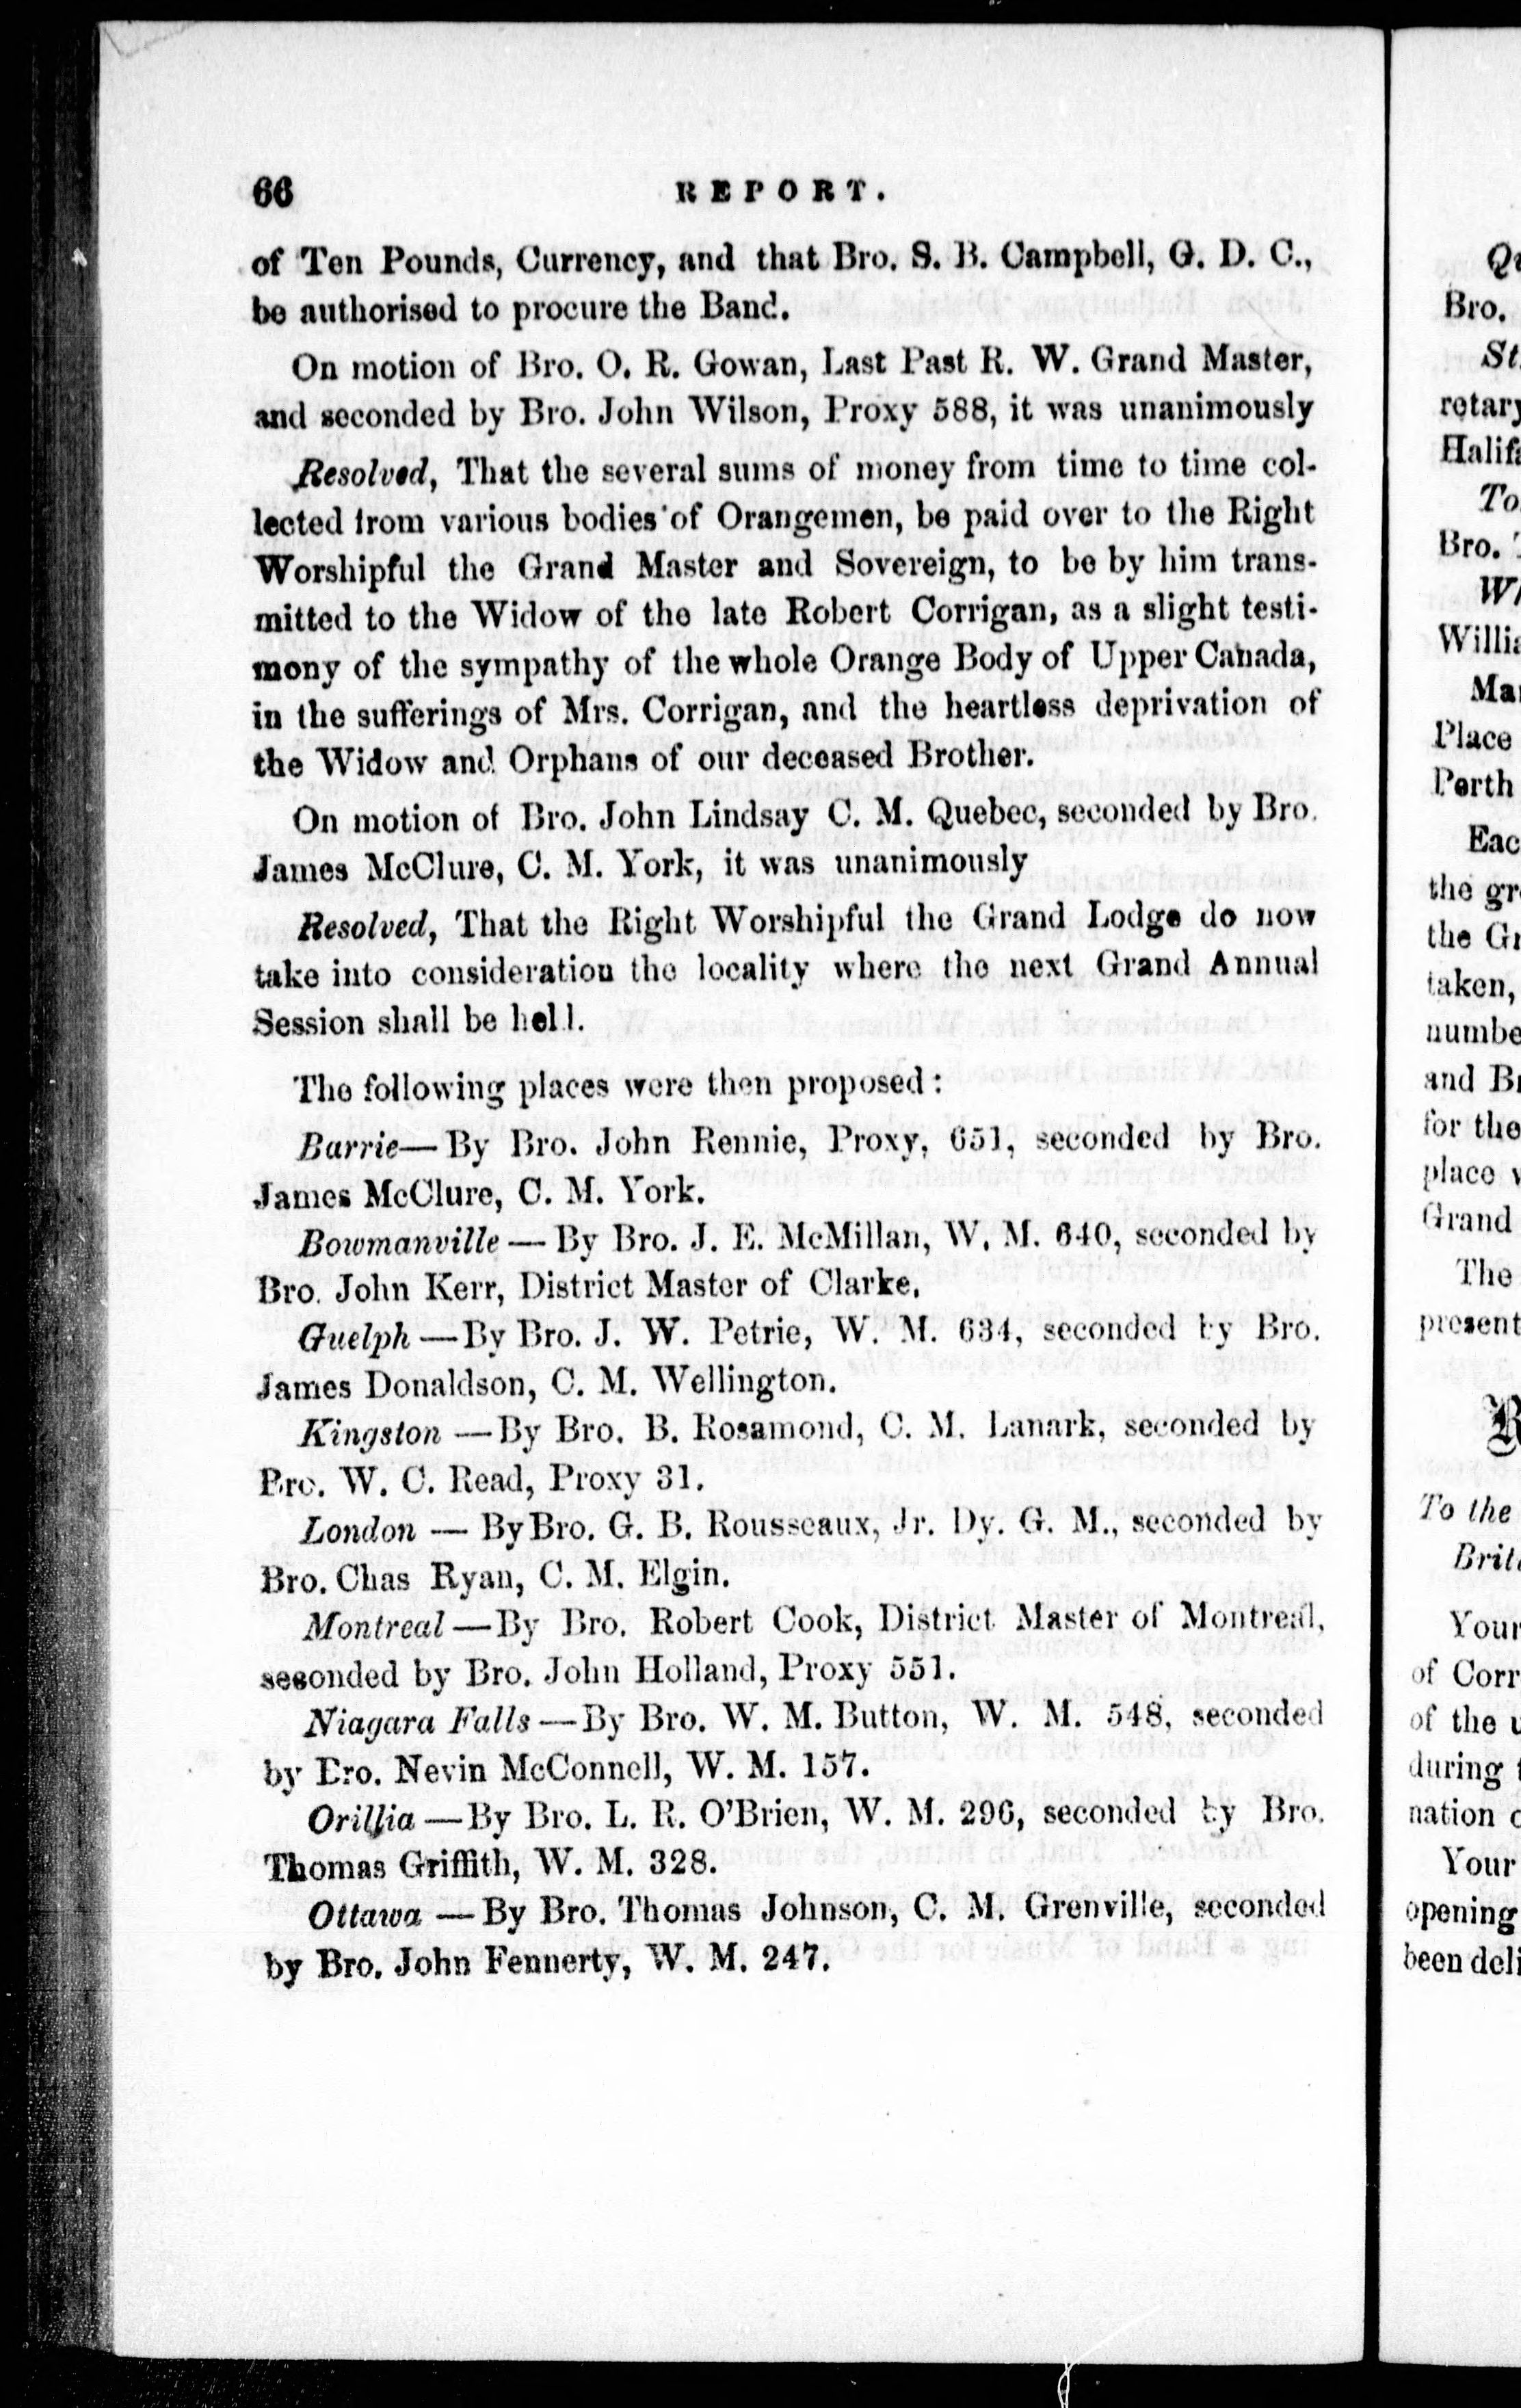 66 REPORT.
of Ten Pounds, Currency, and that Bro. S. B. Campbell, G. D. C.,
be authorised to procure the Band.
On motion of Bro. O. R. Gowan, Last Past R. W. Grand Master,
and seconded by Bro. John Wilson, Proxy 588, it was unanimously
Resolved, That the several sums of money from time to time col-
lected from various bodies of Orangemen, be paid over to the Right
Worshipful the Grand Master and Sovereign, to be by him trans-
mitted to the Widow of the late Robert Corrigan, as a slight testi-
mony of the sympathy of the whole Orange Body of Upper Canada,
in the sufferings of Mrs. Corrigan, and the heartless deprivation of
the Widow and Orphans of our deceased Brother.
On motion of Bro. John Lindsay C. M. Quebec, seconded by Bro.
James McClure, C. M. York, it was unanimously
Resolved, That the Right Worshipful the Grand Lodge do now
take into consideration the locality where the next Grand Annual
Session shall be held.
The following places were then proposed:
Barrie—By Bro. John Rennie, Proxy, 651, seconded by Bro.
James McClure, C. M. York.
Bowmanville—By Bro. J. E. McMillan, W. M. 640, seconded by
Bro. John Kerr, District Master of Clarke.
Guelph—By Bro. J. W. Petrie, W. M. 634, seconded by Bro.
James Donaldson, C. M. Wellington.
Kingston—By Bro. B. Rosamond, C. M. Lanark, seconded by
Bro. W. C. Read, Proxy 31.
London—By Bro. G. B. Rousseaux, Jr. Dy. G. M., seconded by
Bro. Chas Ryan, C. M. Elgin.
Montreal—By Bro. Robert Cook, District Master of Montreal,
seconded by Bro. John Holland, Proxy 551.
Niagara Falls—By Bro. W. M. Button, W. M. 548, seconded
by Bro. Nevin McConnell, W. M. 157.
Orillia—By Bro. L. R. O'Brien, W. M. 296, seconded by Bro.
Thomas Griffith, W. M. 328.
Ottawa—By Bro. Thomas Johnson, C. M. Grenville, seconded
by Bro. John Fennerty, W. M. 247.
Bro.
Place
Perth
the
taken,
and
for the
Grand
The
present
To the
of Corr
of the
during
nation
Your
opening
been